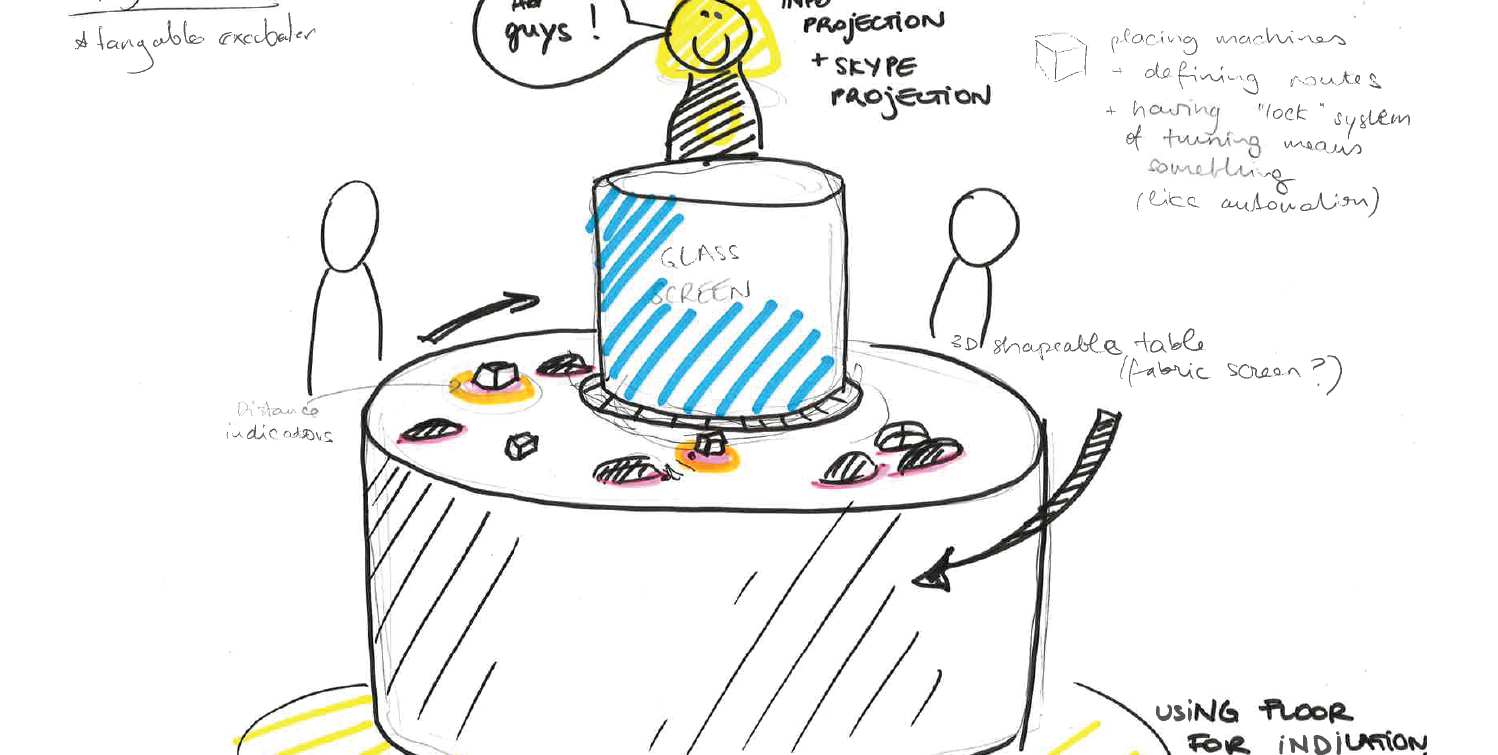 A tangable
guys !
INFO
PROJECTION
+ SKYPE
PROJECTION
placing machines
+ defining routes
+ having "lock" system
of turning means
something
(like automation)
GLASS
SCREEN
3D shapeable table
(fabric screen?)
Distance
indicators
USING FLOOR
FOR INDICATION